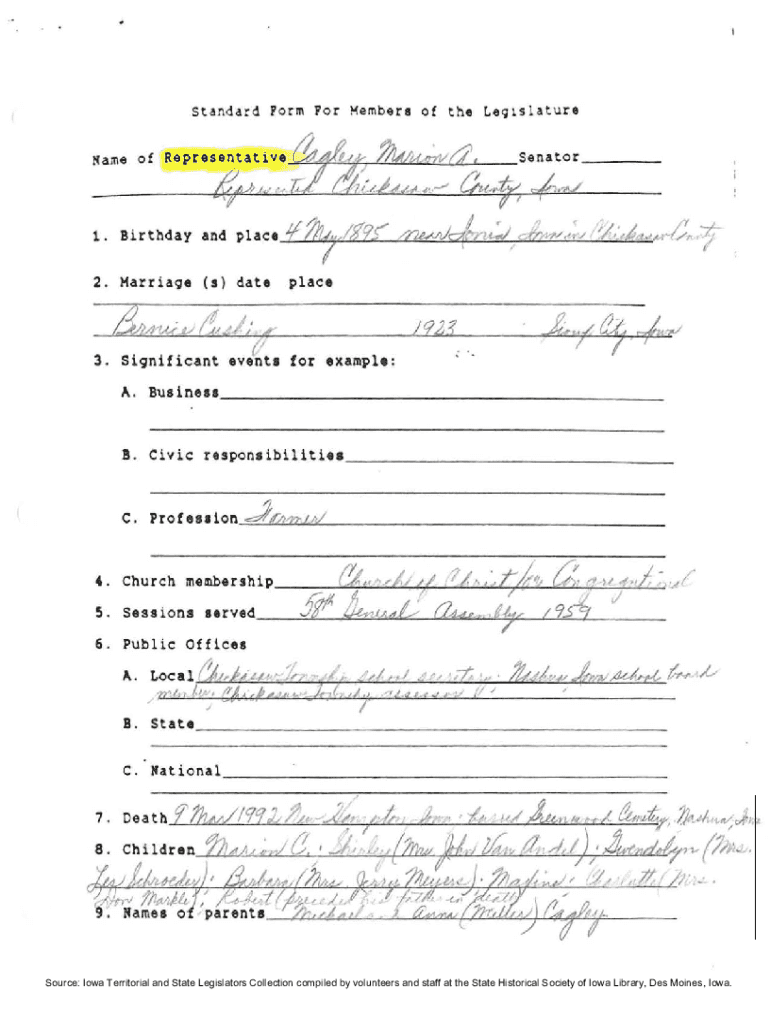 Standard Form For Members of the Legislature
Name of Representative Cagley, Marion A. Senator
Represented Chickasaw County, Iowa
1. Birthday and place 4 May 1895 near Ionia, Iowa in Chickasaw County
2. Marriage (s) date place
Bernice Cushing 1923 Sioux City, Iowa
3. Significant events for example:
A. Business
B. Civic responsibilities
C. Profession Farmer
4. Church membership Church of Christ/or Congregational
5. Sessions served 58th General Assembly 1959
6. Public Offices
A. Local Chickasaw Township school secretary; Nashua, Iowa school board
member; Chickasaw Township assessor
B. State
C. National
7. Death 9 Mar 1992 New Hampton Iowa; buried Greenwood Cemetery, Nashua, Iowa
8. Children Marion C.; Shirley (Mrs. John Van Andel); Gwendolyn (Mrs.
Les Schroeder); Barbara (Mrs. Jerry Meyers); Charlotte (Mrs.
Don Markle); Robert (preceded his father in death)
9. Names of parents Michael and Anna (Miller) Cagley
Source: Iowa Territorial and State Legislators Collection compiled by volunteers and staff at the State Historical Society of Iowa Library, Des Moines, Iowa.